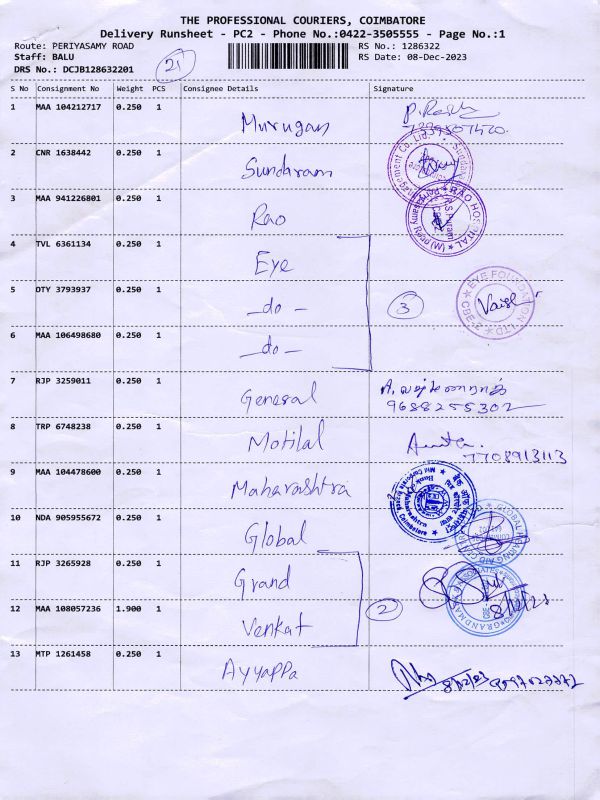 THE PROFESSIONAL COURIERS, COIMBATORE
Delivery Runsheet - PC2 - Phone No.:0422-3505555 - Page No.:1
Route: PERIYASAMY ROAD
RS No.: 1286322
Staff: BALU
RS Date: 08-Dec-2023
DRS No.: DCJB128632201
21
S No Consignment No Weight PCS Consignee Details Signature
1 MAA 104212717 0.250 1 Murugan
2 CNR 1638442 0.250 1 Sundaram
3 MAA 941226801 0.250 1 Rao
RAO HOSPITAL
4 TVL 6361134 0.250 1 Eye
5 OTY 3793937 0.250 1 -do- 3
EYE FOUNDATION LTD CBE-2
6 MAA 106498680 0.250 1 -do-
7 RJP 3259011 0.250 1 General
9688255302
8 TRP 6748238 0.250 1 Motilal
7708913113
9 MAA 104478600 0.250 1 Maharashtra
10 NDA 905955672 0.250 1 Global
11 RJP 3265928 0.250 1 Grand
12 MAA 108057236 1.900 1 Venkat 2
13 MTP 1261458 0.250 1 Ayyappa